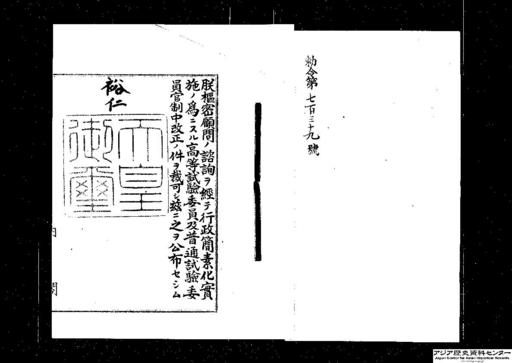 勅令第七百三十九號
朕樞密顧問ノ諮詢ヲ經テ行政簡素化實
施ノ爲ニスル高等試驗委員及普通試驗委
員官制中改正ノ件ヲ裁可シ玆ニ之ヲ公布セシム
裕仁
天皇
御璽
内閣
アジア歴史資料センター
Japan Center for Asian Historical Records